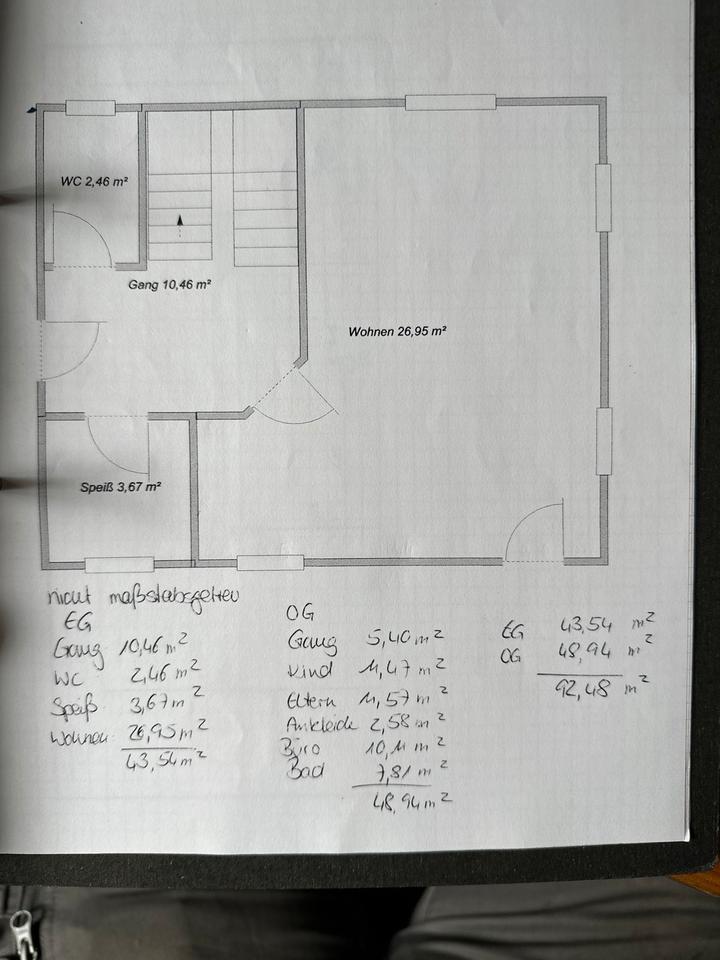 WC 2,46 m²
Gang 10,46 m²
Wohnen 26,95 m²
Speiß 3,67 m²
nicht maßstabsgetreu
EG
Gang 10,46 m²
WC 2,46 m²
Speiß 3,67 m²
Wohnen 26,95 m²
43,54 m²
OG
Gang 5,40 m²
Kind 11,47 m²
Eltern 11,57 m²
Ankleide 2,58 m²
Büro 10,11 m²
Bad 7,81 m²
48,94 m²
EG 43,54 m²
OG 48,94 m²
92,48 m²